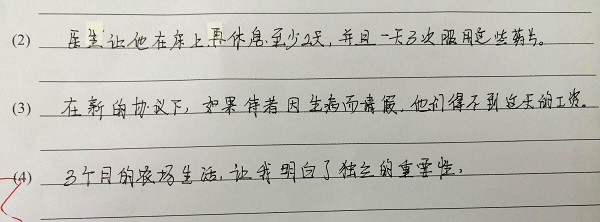 (2) 医生让他在床上再休息至少2天，并且一天3次服用这些药片。
(3) 在新的协议下，如果侍者因生病而请假，他们得不到这天的工资。
(4) 3个月的农场生活，让我明白了独立的重要性。